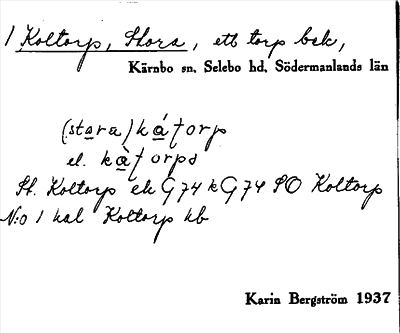 1 Koltorp, Stora, ett torp bek,
Kärnbo sn. Selebo hd. Södermanlands län
(stora) kåtorp
el. kàtorpa
St. Koltorp ek G 74 k G 74 SO Koltorp
N:o 1 kal Koltorp kb
Karin Bergström 1937